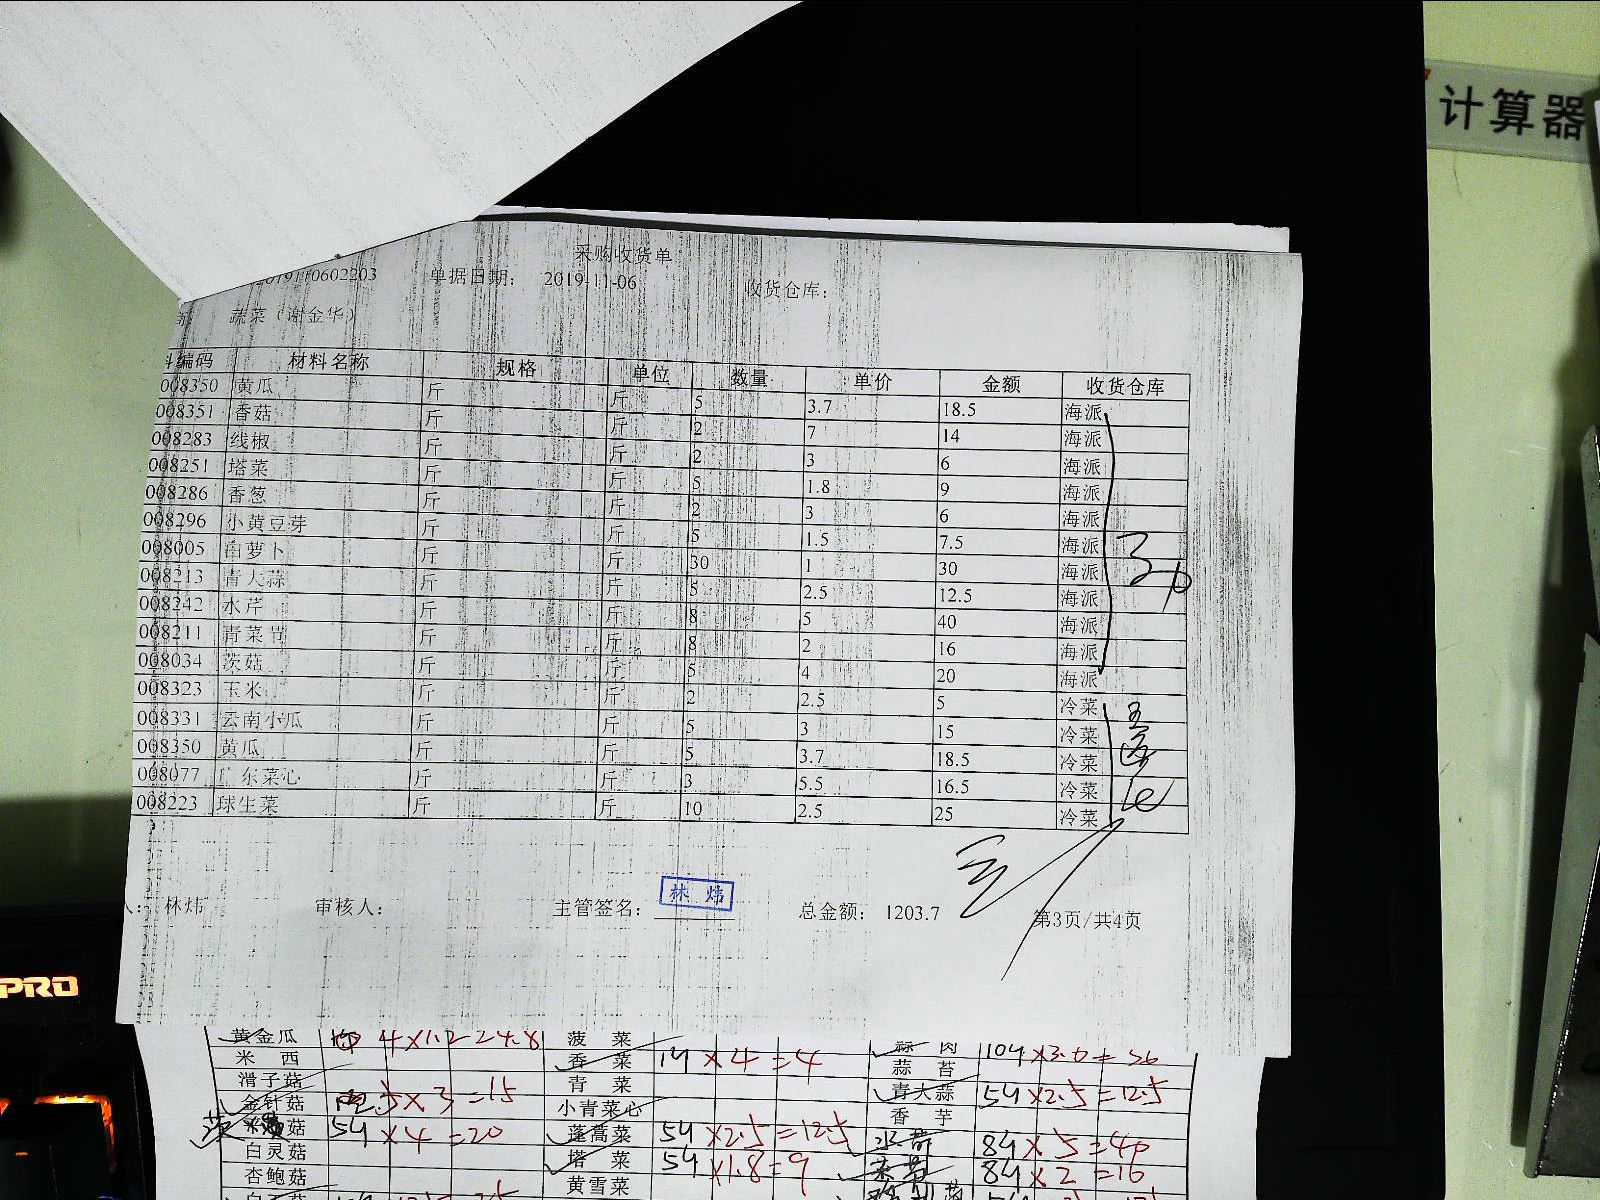 计算器
采购收货单
20191110602203 单据日期： 2019-11-06 收货仓库：
蔬菜（谢金华）
编码 材料名称 规格 单位 数量 单价 金额 收货仓库
008350 黄瓜 斤 斤 5 3.7 18.5 海派
008351 香菇 斤 斤 2 7 14 海派
008283 线椒 斤 斤 2 3 6 海派
008251 塔菜 斤 斤 5 1.8 9 海派
008286 香葱 斤 斤 2 3 6 海派
008296 小黄豆芽 斤 斤 5 1.5 7.5 海派
008005 白萝卜 斤 斤 30 1 30 海派
008213 青大蒜 斤 斤 5 2.5 12.5 海派
008242 水芹 斤 斤 8 5 40 海派
008211 青菜苔 斤 斤 8 2 16 海派
008034 茨菇 斤 斤 5 4 20 海派
008323 玉米 斤 斤 2 2.5 5 冷菜
008331 云南小瓜 斤 斤 5 3 15 冷菜
008350 黄瓜 斤 斤 5 3.7 18.5 冷菜
008077 广东菜心 斤 斤 3 5.5 16.5 冷菜
008223 球生菜 斤 斤 10 2.5 25 冷菜
林炜 审核人： 主管签名： 林炜 总金额： 1203.7 第3页/共4页
PRO
黄金瓜 4×1.2=4.8 菠菜 蒜肉
米西 香菜 1斤×4=4 蒜苔
滑子菇 青菜 青大蒜 5斤×2.5=12.5
金针菇 5×3=15 小青菜心 香芋
茨菇 5斤×4=20 蓬蒿菜 5斤×2.5=12.5 水芹 8斤×5=40
白灵菇 塔菜 5斤×1.8=9 8斤×2=16
杏鲍菇 黄雪菜